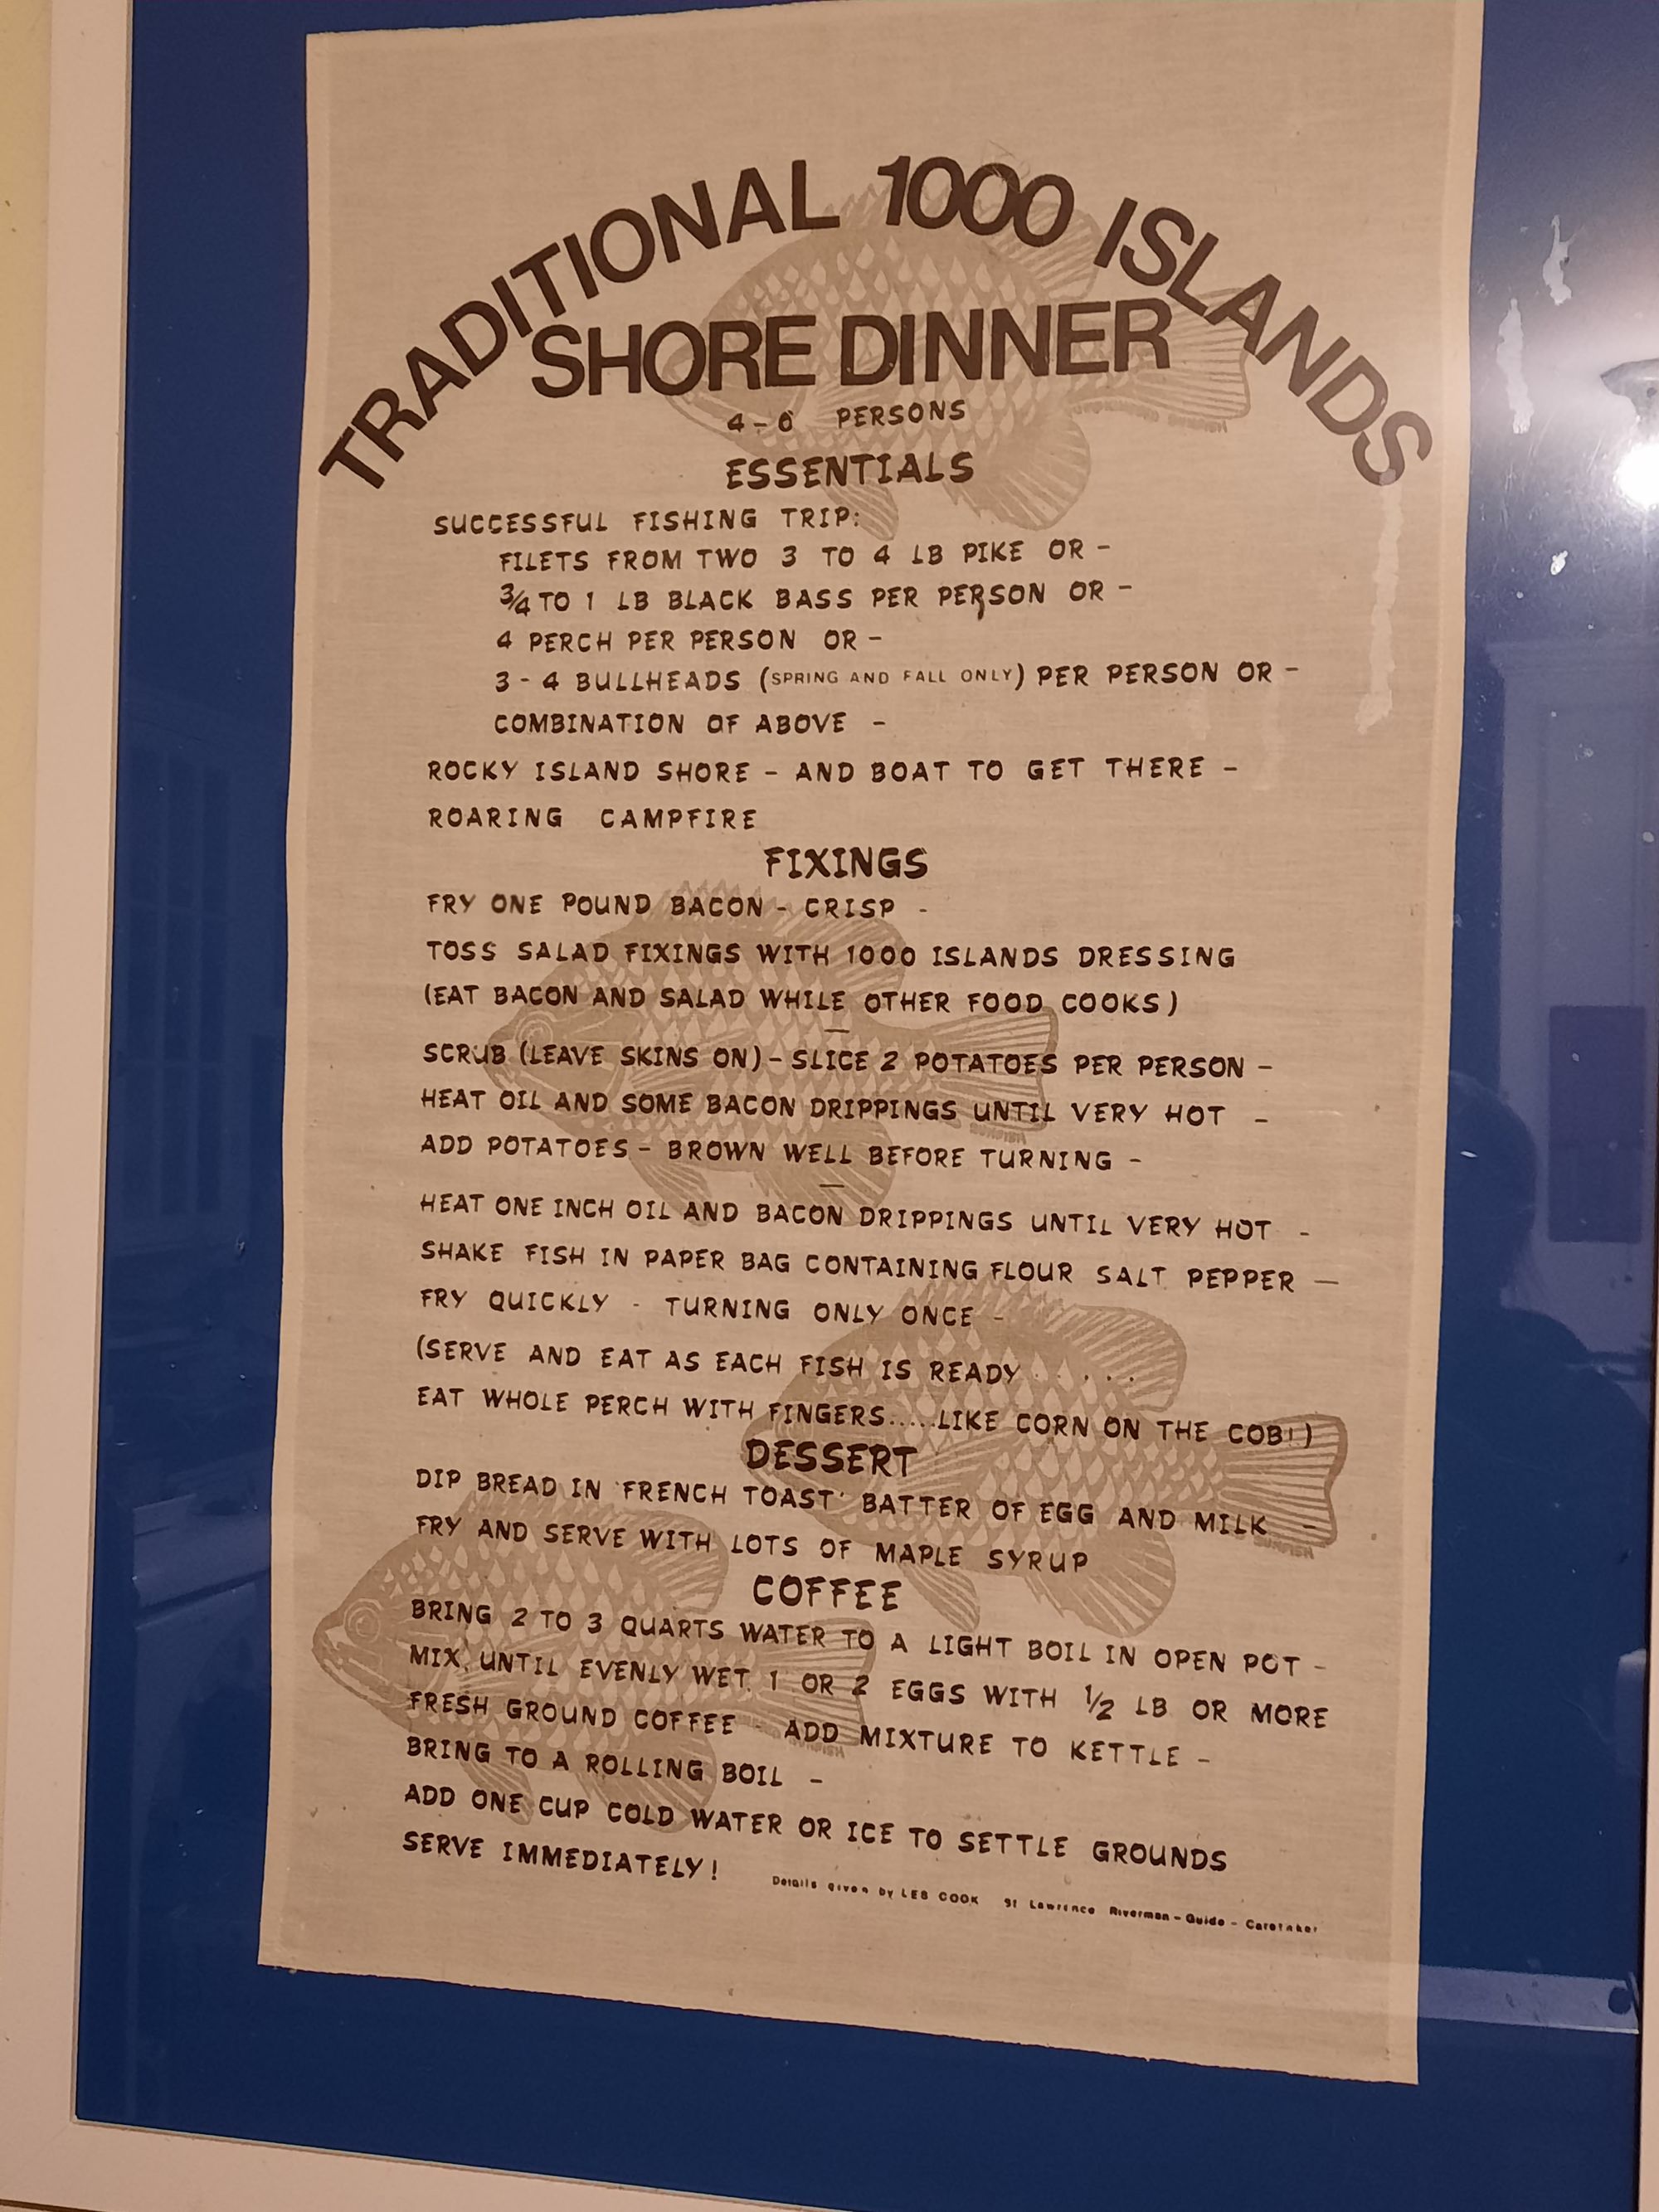 TRADITIONAL 1000 ISLANDS
SHORE DINNER
4-6 PERSONS
ESSENTIALS
SUCCESSFUL FISHING TRIP:
FILETS FROM TWO 3 TO 4 LB PIKE OR -
3/4 TO 1 LB BLACK BASS PER PERSON OR -
4 PERCH PER PERSON OR -
3 - 4 BULLHEADS (SPRING AND FALL ONLY) PER PERSON OR -
COMBINATION OF ABOVE -
ROCKY ISLAND SHORE - AND BOAT TO GET THERE -
ROARING CAMPFIRE
FIXINGS
FRY ONE POUND BACON - CRISP -
TOSS SALAD FIXINGS WITH 1000 ISLANDS DRESSING
(EAT BACON AND SALAD WHILE OTHER FOOD COOKS)
—
SCRUB (LEAVE SKINS ON) - SLICE 2 POTATOES PER PERSON -
HEAT OIL AND SOME BACON DRIPPINGS UNTIL VERY HOT -
ADD POTATOES - BROWN WELL BEFORE TURNING -
—
HEAT ONE INCH OIL AND BACON DRIPPINGS UNTIL VERY HOT -
SHAKE FISH IN PAPER BAG CONTAINING FLOUR SALT PEPPER —
FRY QUICKLY - TURNING ONLY ONCE -
(SERVE AND EAT AS EACH FISH IS READY . . . . .
EAT WHOLE PERCH WITH FINGERS.....LIKE CORN ON THE COB!)
DESSERT
DIP BREAD IN 'FRENCH TOAST' BATTER OF EGG AND MILK -
FRY AND SERVE WITH LOTS OF MAPLE SYRUP
COFFEE
BRING 2 TO 3 QUARTS WATER TO A LIGHT BOIL IN OPEN POT -
MIX, UNTIL EVENLY WET, 1 OR 2 EGGS WITH 1/2 LB OR MORE
FRESH GROUND COFFEE - ADD MIXTURE TO KETTLE -
BRING TO A ROLLING BOIL -
ADD ONE CUP COLD WATER OR ICE TO SETTLE GROUNDS
SERVE IMMEDIATELY!
Details given by LES COOK St Lawrence Riverman - Guide - Caretaker
SUNFISH
SUNFISH
SUNFISH
SUNFISH